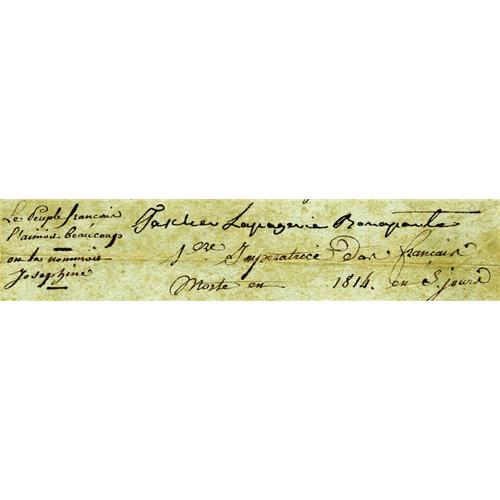 Le Peuple francais
l'aimois beaucoup
on la nommois
Josephine
Tascher Lapagerie Bonaparte
1.ere Imperatrice Des francais
Morte en 1814. en 3. jours